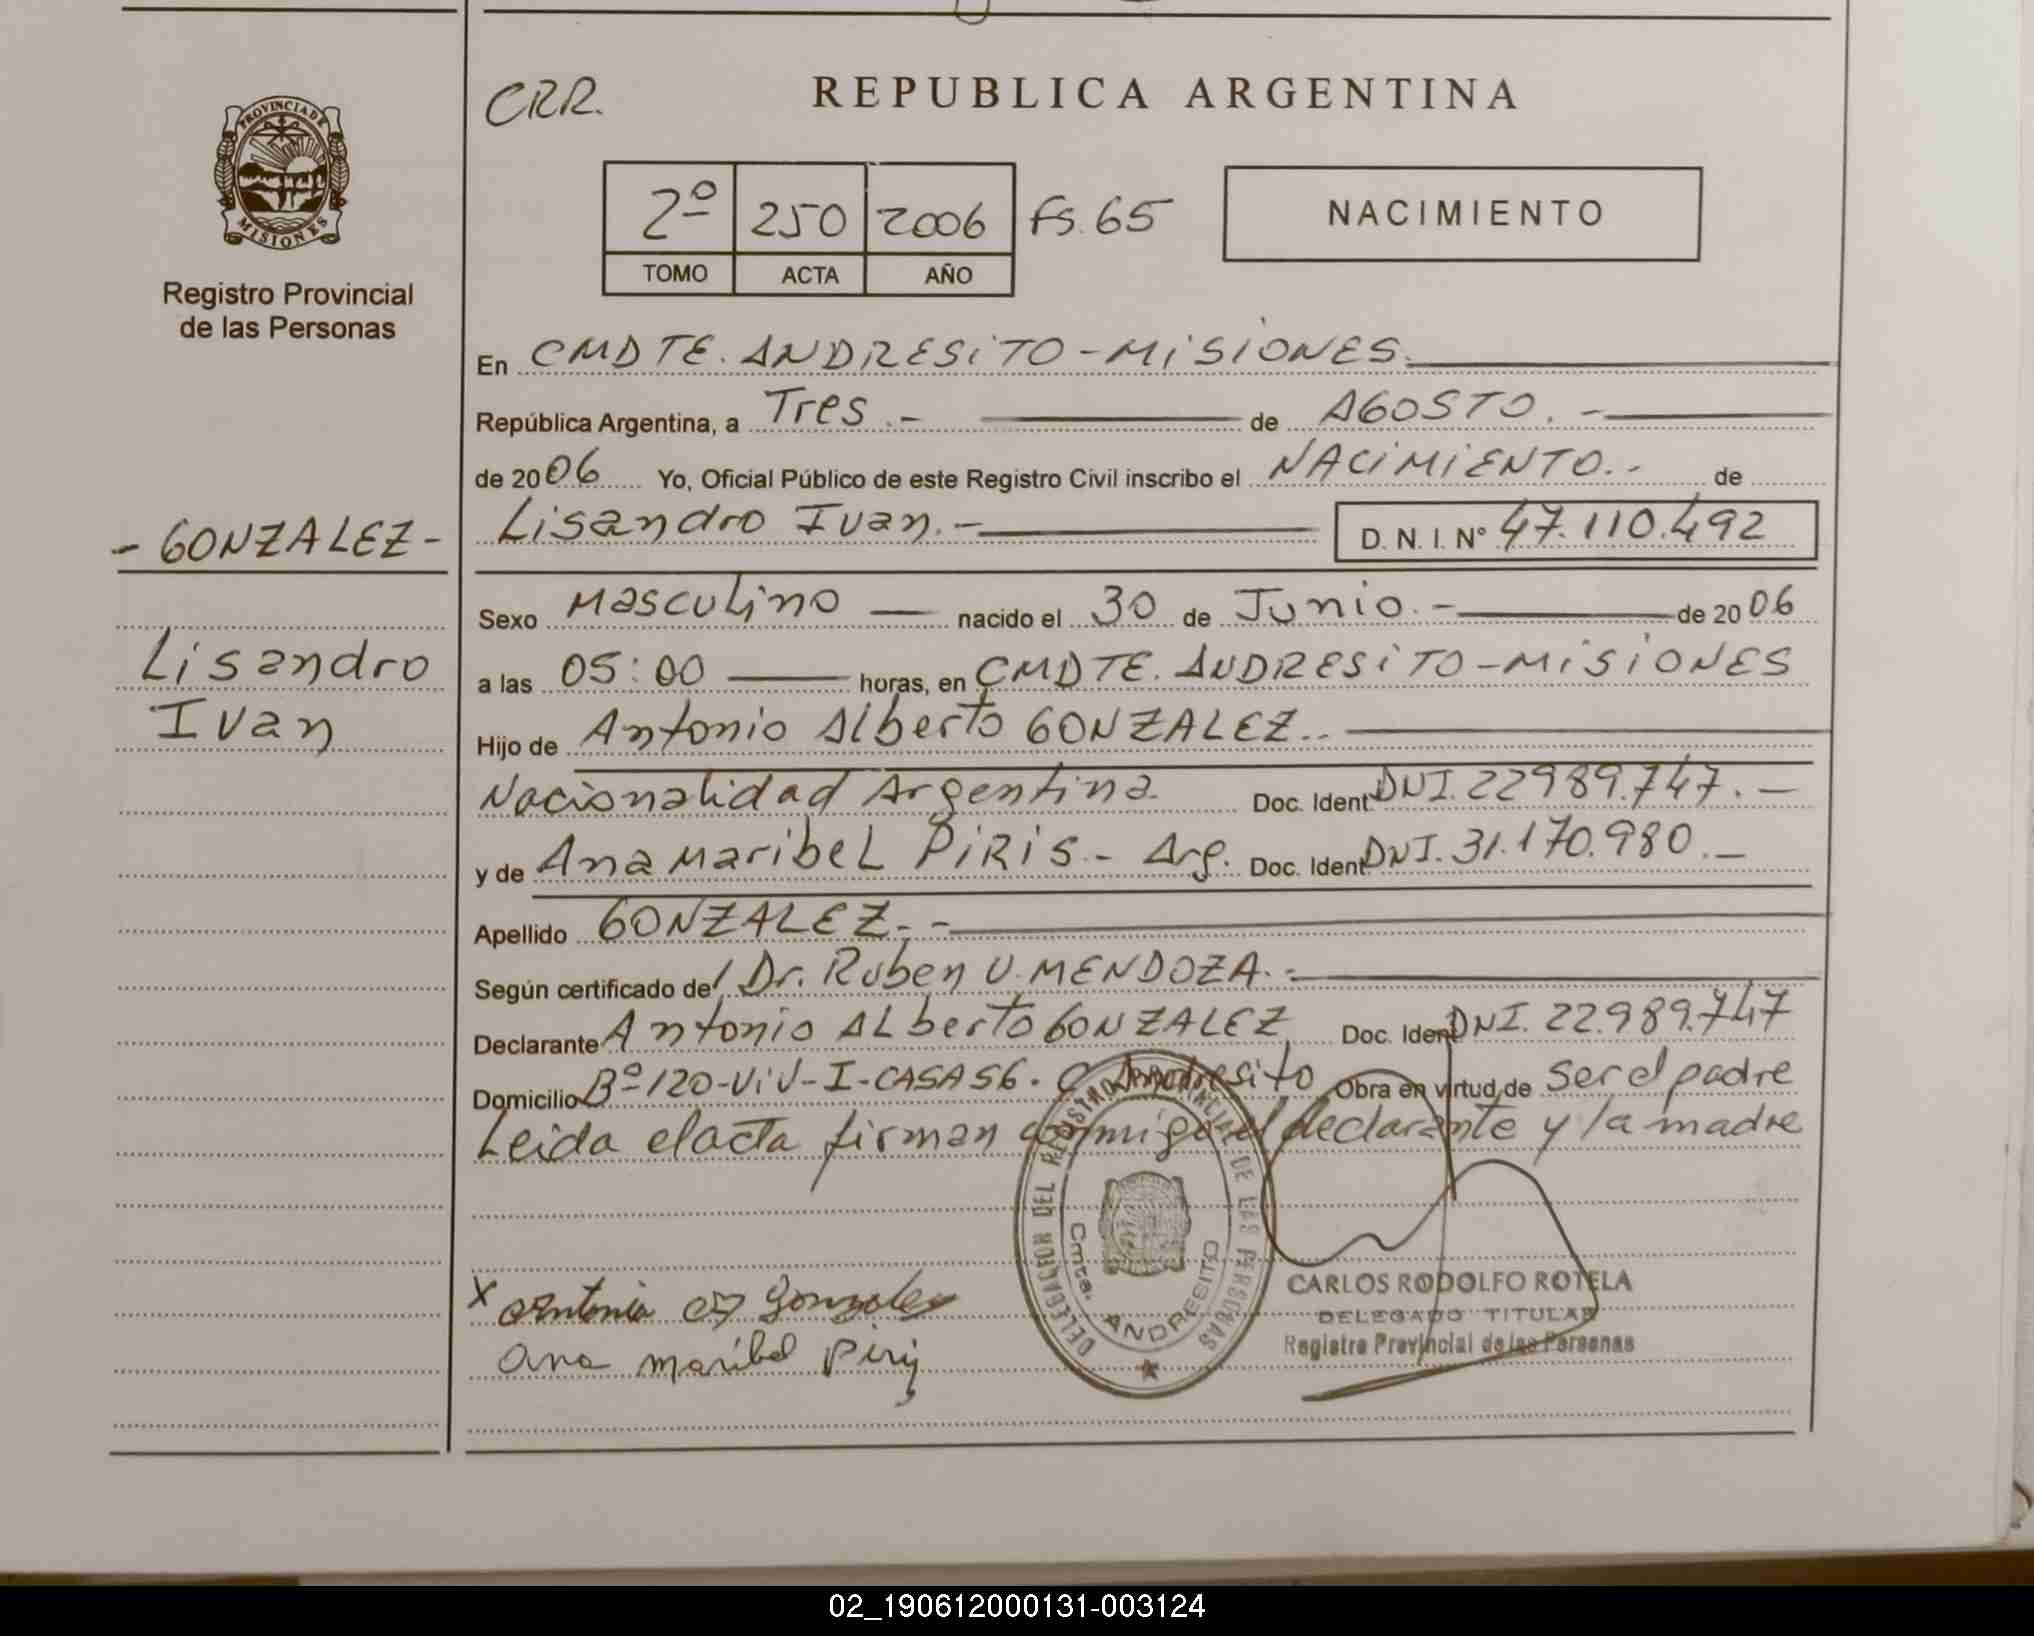 PROVINCIA DE
MISIONES
Registro Provincial
de las Personas
- GONZALEZ -
Lisandro
Ivan
CRR.
REPUBLICA ARGENTINA
2º 250 2006 Fs. 65
TOMO ACTA AÑO
NACIMIENTO
En CMDTE. ANDRESITO - MISIONES.
República Argentina, a Tres.- de AGOSTO.-
de 2006 Yo, Oficial Público de este Registro Civil inscribo el NACIMIENTO.- de
Lisandro Ivan.- D. N. I. Nº 47.110.492
Sexo Masculino — nacido el 30 de Junio.- de 2006
a las 05:00 — horas, en CMDTE. ANDRESITO - MISIONES
Hijo de Antonio Alberto GONZALEZ.-
Nacionalidad Argentina Doc. Ident DNI. 22989.747.-
y de Ana Maribel PIRIS.- Arg. Doc. Ident DNI. 31.170.980.-
Apellido GONZALEZ.-
Según certificado del Dr. Ruben U. MENDOZA.-
Declarante Antonio Alberto GONZALEZ Doc. Ident DNI. 22.989.747
Domicilio Bº 120-ViV-I-CASA 56. C. Andresito Obra en virtud de ser el padre
Leida el acta firman conmigo el declarante y la madre
DELEGACION DEL REGISTRO PROVINCIAL DE LAS PERSONAS
Cmte. ANDRESITO
CARLOS RODOLFO ROTELA
DELEGADO TITULAR
Registro Provincial de las Personas
x Antonio Gonzalez
Ana maribel Piris
02_190612000131-003124